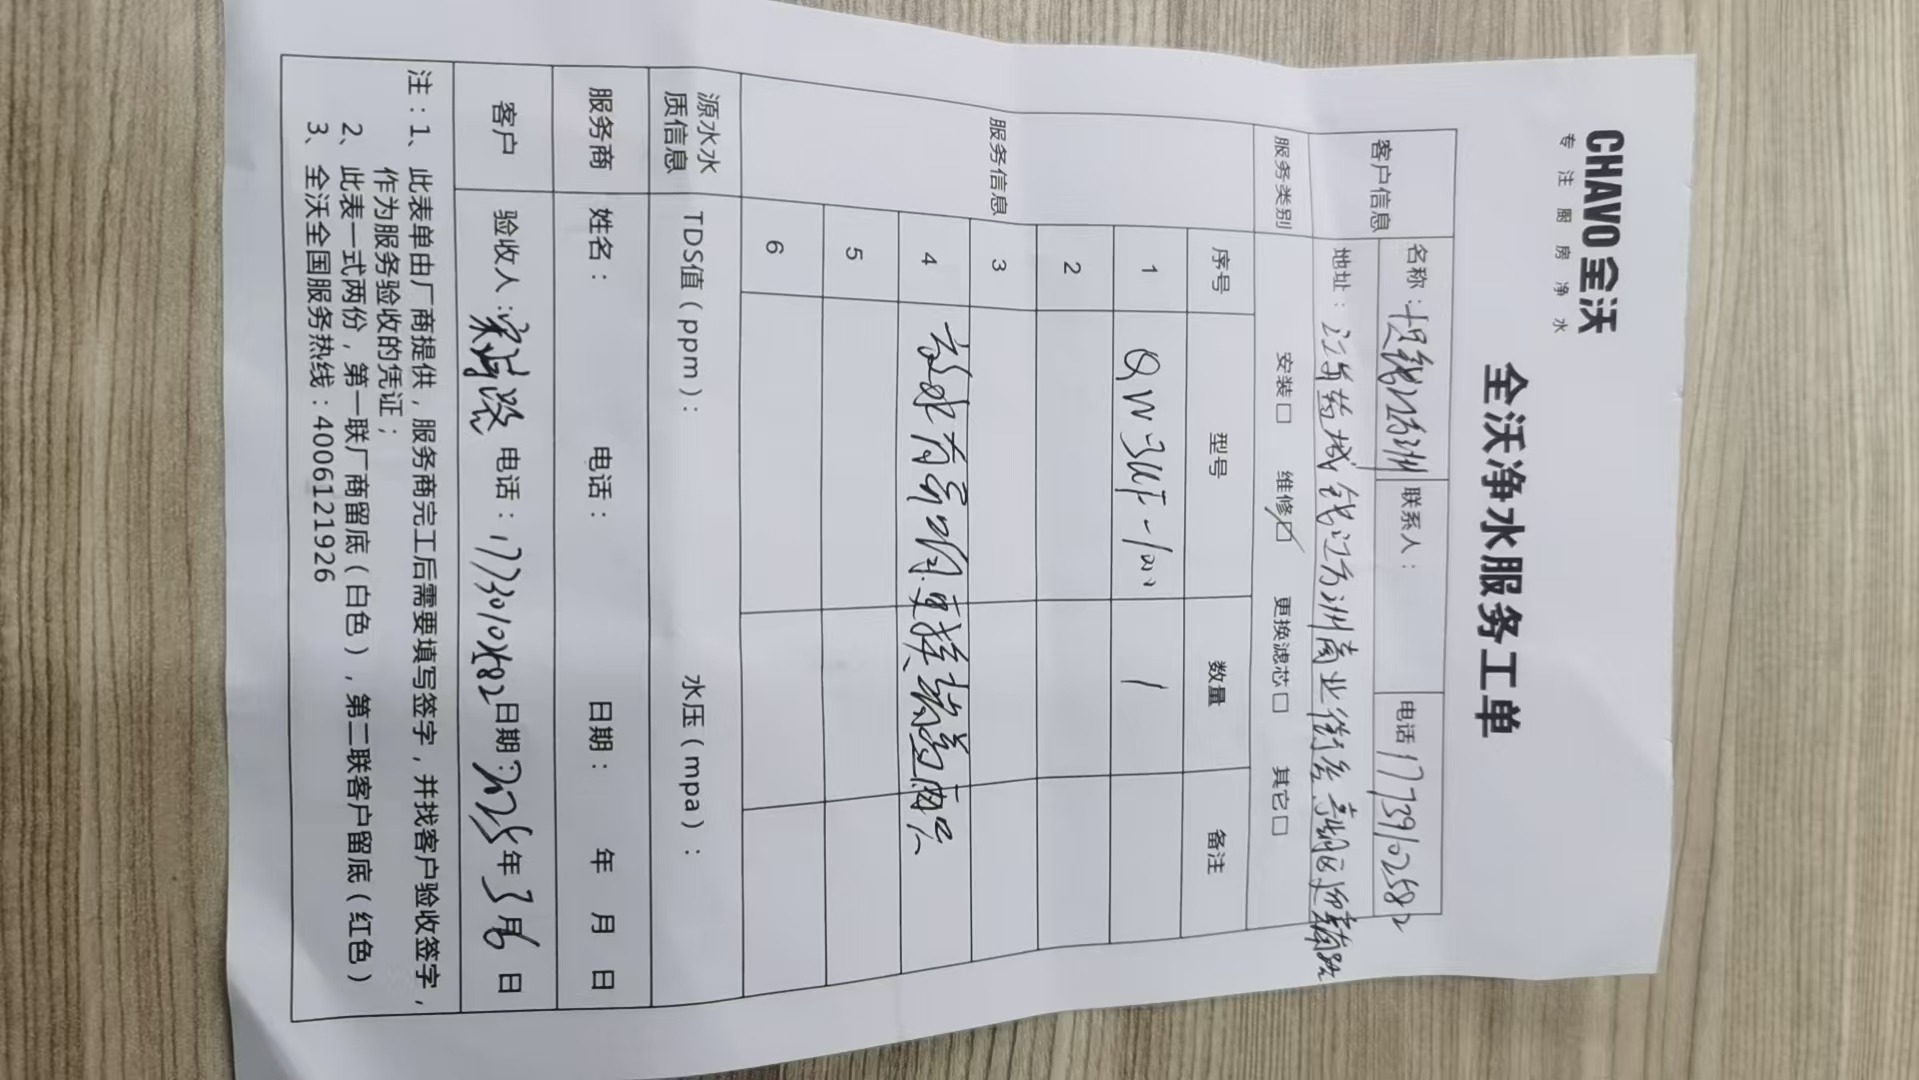 CHAVO 全沃
专注厨房净水
全沃净水服务工单
客户信息
名称：
联系人：
电话 17739102582
地址： 钱江方洲商业街
服务类别
安装□ 维修☑ 更换滤芯□ 其它□
服务信息
序号 型号 数量 备注
1 QW-3UF-1000 1
2
3
4
5
6
源水水质信息
TDS值（ppm）： 水压（mpa）：
服务商 姓名： 电话： 日期： 年 月 日
客户 验收人： 电话： 日期：2025年3月6日
注：1、此表单由厂商提供，服务商完工后需要填写签字，并找客户验收签字，
作为服务验收的凭证；
2、此表一式两份，第一联厂商留底（白色），第二联客户留底（红色）
3、全沃全国服务热线：4006121926